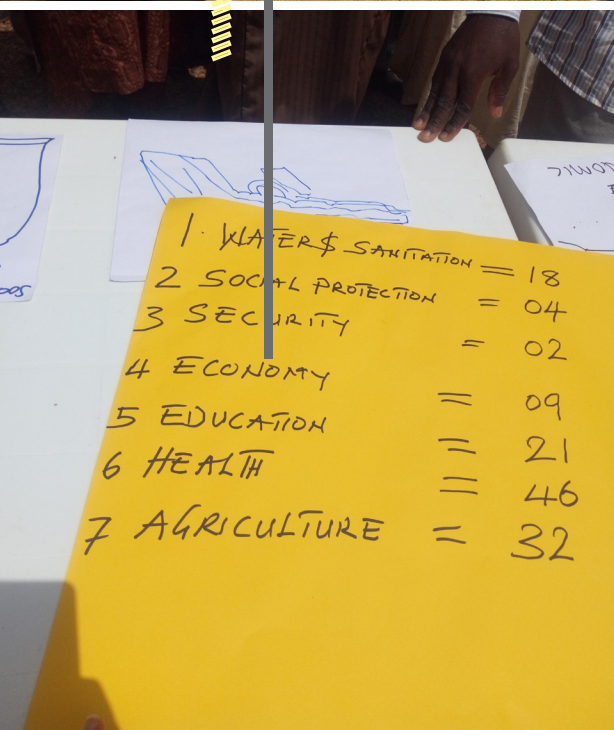 1. WATER $ SANITATION = 18
2 SOCIAL PROTECTION = 04
3 SECURITY = 02
4 ECONOMY = 09
5 EDUCATION = 21
6 HEALTH = 46
7 AGRICULTURE = 32